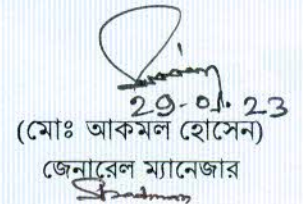 29-01.23
(মোঃ আকমল হোসেন)
জেনারেল ম্যানেজার